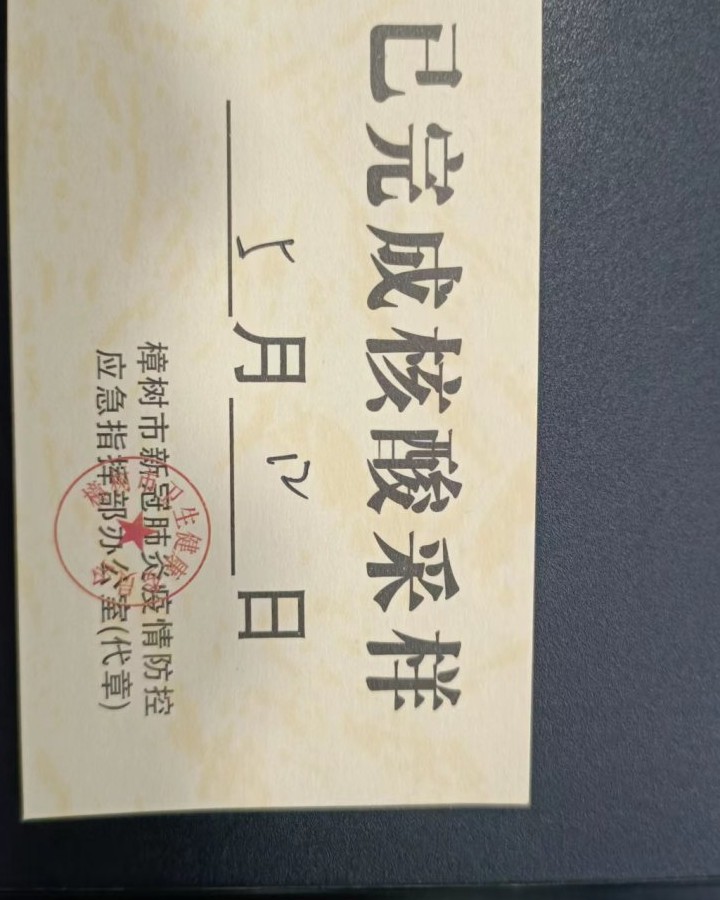 已完成核酸采样
5月12日
樟树市新冠肺炎疫情防控
应急指挥部办公室(代章)